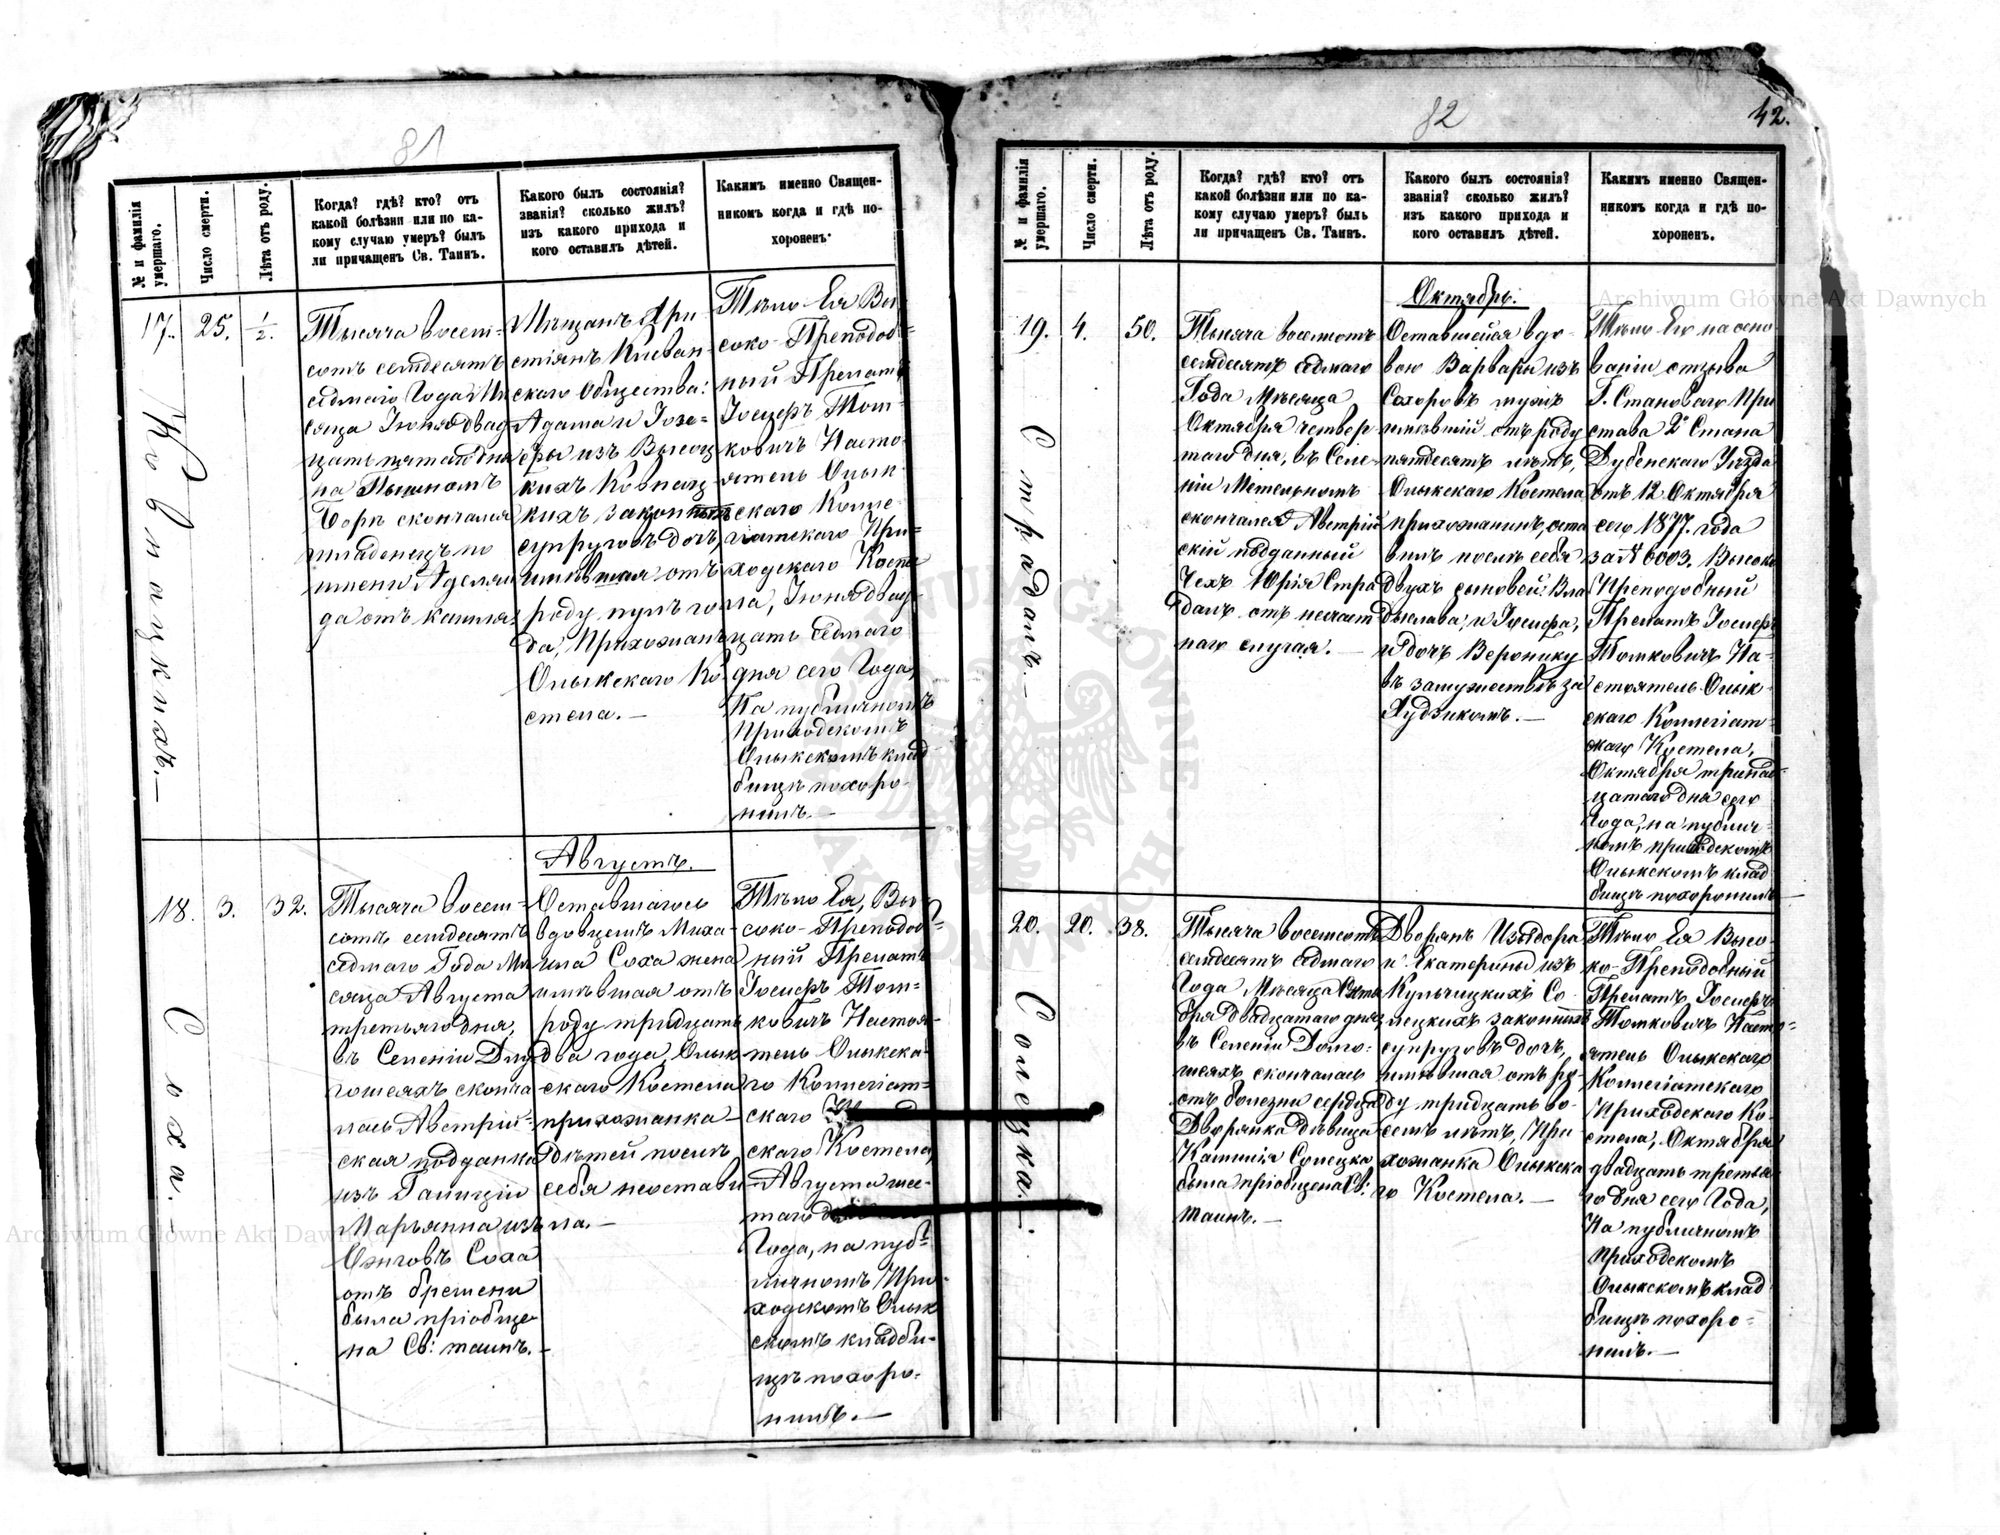 81
№ и фамилія умершаго.
Число смерти.
Лѣта отъ роду.
Когда? гдѣ? кто? отъ
какой болѣзни или по ка-
кому случаю умеръ? былъ
ли причащенъ Св. Таинъ.
Какого былъ состоянія?
званія? сколько жилъ?
изъ какого прихода и
кого оставилъ дѣтей.
Какимъ именно Священ-
никомъ когда и гдѣ по-
хороненъ.
17.
25.
½.
Тысяча восем-
сотъ семдесятъ
седмаго Года Мѣ
сяца Іюня двад
цать пятаго дня
на Пышномъ
Борѣ скончался
младенецъ по
имени Аделяи
да отъ кашля
Мѣщанъ Хри
стіянъ Клеван
скаго Общества:
Адама и Іозе-
фы изъ Высоц
кихъ Ковнац
кихъ законныхъ
супруговъ дочь,
имѣвшая отъ
роду пулъ го
да, Прихожанъ
Олыкскаго Ко
стела.—
Тѣло Ея Вы
соко-Преподоб-
ный Прелатъ
Іосифъ Том-
ковичъ Насто-
ятель Олык-
скаго Колле-
гіатскаго При-
ходскаго Косте
ла, Іюня двад
цать седмаго
дня сего Года,
На публичномъ
Приходскомъ
Олыкскомъ клад
бищѣ похоро-
нилъ.—
Ковнацкихъ.—
18.
3.
32.
Августъ.
Тысяча восем-
сотъ семдесятъ
седмаго Года Мѣ
сяца Августа
третьяго дня,
въ Селеніи Длу
гошеяхъ сконча
лась Австрій-
ская подданка
изъ Галиціи
Марьянна изъ
Ожговъ Соха
отъ бремени
была пріобще
на Св: таинъ.—
Оставшагось
вдовцемъ Миха-
ила Соха жена
имѣвшая отъ
роду тридцать
два года, Олык
скаго Костела
прихожанка—
дѣтей послѣ
себя неостави
ла.—
Тѣло Ея, Вы-
соко-Преподоб-
ный Прелатъ
Іосифъ Том-
ковичъ Настоя-
тель Олыкска-
го Коллегіат-
скаго
скаго Костела,
Августа шес-
таго
Года, на пуб-
личномъ При-
ходскомъ Олык
скомъ кладби-
щѣ похоро-
нилъ.—
Соха.—
82
42.
№ и фамилія умершаго.
Число смерти.
Лѣта отъ роду.
Когда? гдѣ? кто? отъ
какой болѣзни или по ка-
кому случаю умеръ? былъ
ли причащенъ Св. Таинъ.
Какого былъ состоянія?
званія? сколько жилъ?
изъ какого прихода и
кого оставилъ дѣтей.
Какимъ именно Священ-
никомъ когда и гдѣ по-
хороненъ.
Октябрь.
19.
4.
50.
Тысяча восемсотъ
семдесятъ седмаго
Года Мѣсяца
Октября четвер
таго дня, въ Селе-
ніи Метельномъ
скончался Австрій
скій подданный
Чехъ Юрія Стра
далъ отъ нещаст
наго случая.—
Оставшейся вдо-
вою Варвары изъ
Сохоровъ мужъ
имѣвшій отъ роду
пятдесятъ лѣтъ,
Олыкскаго Костела
прихожанинъ, оста
вилъ послѣ себя
двухъ сыновей: Вла
дыслава, и Іосифа,
и дочь Веронику
въ замужествѣ за
Худзикомъ.—
Тѣло Его на осно
ваніи отзыва
Г. Становаго При
става 2го Стана
Дубенскаго Уѣзда
отъ 12 Октября
сего 1877. года
за № 6003. Высоко
Преподобный
Прелатъ Іосифъ
Томковичъ На-
стоятель Олык-
скаго Коллегіат-
скаго Костела,
Октября тринад-
цатаго дня сего
Года, на публич-
номъ приходскомъ
Олыкскомъ клад
бищѣ похоронилъ—
Страдалъ.—
20.
20.
38.
Тысяча восемсотъ
семдесятъ седмаго
Года, Мѣсяца Октя
бря двадцатаго дня
въ Селеніи Долго-
шеяхъ скончалась
отъ болезни сердца
Дворянка дѣвица
Камилія Солецка
была пріобщена Св:
таинъ.—
Дворянъ Изыдора
и Екатерины изъ
Кульчицкихъ Со-
лецкихъ законныхъ
супруговъ дочь,
имѣвшая отъ ро-
ду тридцать во-
семъ лѣтъ, При
хожанка Олыкска
го Костела.—
Тѣло Ея Высо-
ко-Преподобный
Прелатъ, Іосифъ
Томковичъ Насто-
ятель Олыкскаго
Коллегіатскаго
Приходскаго Ко-
стела, Октября
двадцать третья
го дня сего Года,
На публичномъ
приходскомъ
Олыкскомъ клад
бищѣ похоро-
нилъ.—
Солецка.—
Archiwum Główne Akt Dawnych
Archiwum Główne Akt Dawnych
ARCHIWUM GŁÓWNE AKT DAWNYCH